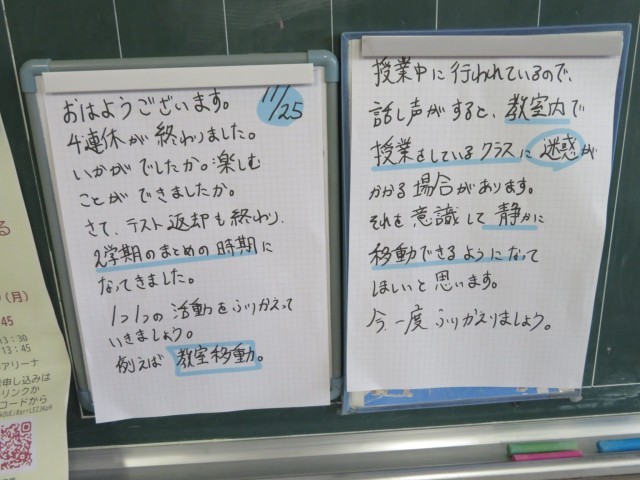 11/25
おはようございます。
4連休が終わりました。
いかがでしたか。楽しむ
ことができましたか。
さて、テスト返却も終わり、
2学期のまとめの時期に
なってきました。
1つ1つの活動をふりかえって
いきましょう。
例えば 教室移動。
授業中に行われているので、
話し声がすると、教室内で
授業をしているクラスに迷惑が
かかる場合があります。
それを意識して静かに
移動できるようになって
ほしいと思います。
今一度ふりかえりましょう。
る
(月)
45
13:30
13:45
アリーナ
申し込みは
リンクか
コードから